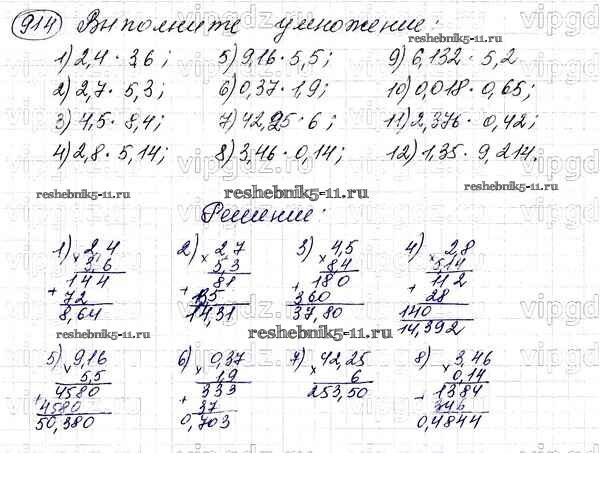 914 Выполните умножение:
1) 2,4 · 3,6; 5) 9,16 · 5,5; 9) 6,132 · 5,2
2) 2,7 · 5,3; 6) 0,37 · 1,9; 10) 0,018 · 0,65;
3) 4,5 · 8,4; 7) 42,25 · 6; 11) 2,376 · 0,42;
4) 2,8 · 5,14; 8) 3,46 · 0,14; 12) 1,35 · 9,214.
reshebnik5-11.ru
reshebnik5-11.ru
reshebnik5-11.ru
Решение:
1) 2,4 2) 2,7 3) 4,5 4) 2,8
× 3,6 × 5,3 × 8,4 × 5,14
144 81 180 112
+ 72 + 135 + 360 + 28
8,64 14,31 37,80 140
14,392
reshebnik5-11.ru
reshebnik5-11.ru
5) 9,16 6) 0,37 7) 42,25 8) 3,46
× 5,5 × 1,9 × 6 × 0,14
4580 333 253,50 1384
+ 4580 + 37 + 346
50,380 0,703 0,4844
reshebnik5-11.ru
vipgdz.ru